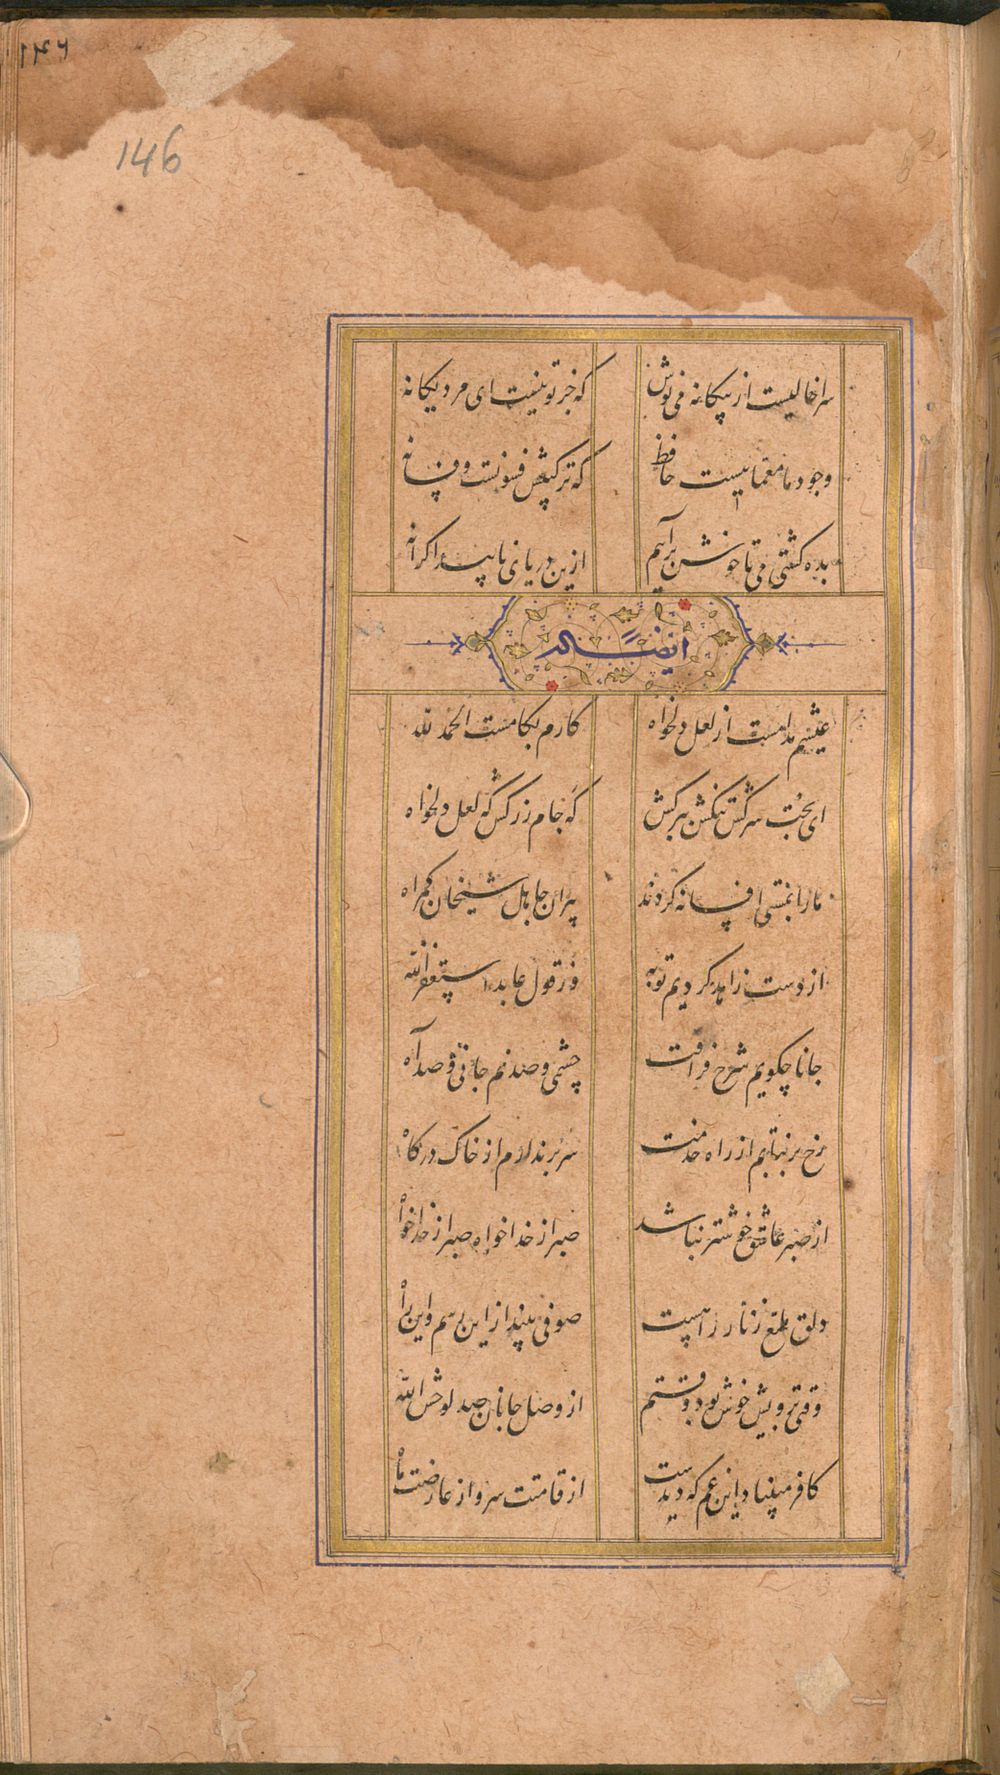 ۱۴۶
146
سرا خالیست از بیکانه می نوش که جز تو نیست ای مرد یکانه
وجود ما معماییست حافظ که ترکیبش فسونست و فسانه
بده کشتی می تا خوش برآییم ازین دریای ناپیدا کرانه
ایضاً له
عیشم مدامست از لعل دلخواه کارم بکامست الحمد لله
ای بخت سرکش تنکش ببر کش که جام زر کش که لعل دلخواه
ما را بمستی افسانه کردند پیران جاهل شیخان کمراه
از دست زاهد کردیم توبه وز قول عابد استغفر الله
جانا چکویم شرح فراقت چشمی و صد نم جانی و صد آه
رخ بر نتابم از راه خدمت سر بر ندارم از خاک درکاه
از صبر عاشق خوشتر نباشد صبر از خدا خواه صبر از خدا خواه
دلق ملمع زنار راهست صوفی بیند از این رسم و این راه
وقتی برویش خوش بود وقتم از وصل جانان صد لوحش الله
کافر مبیناد این غم که دیدست از قامتت سرو از عارضت ماه